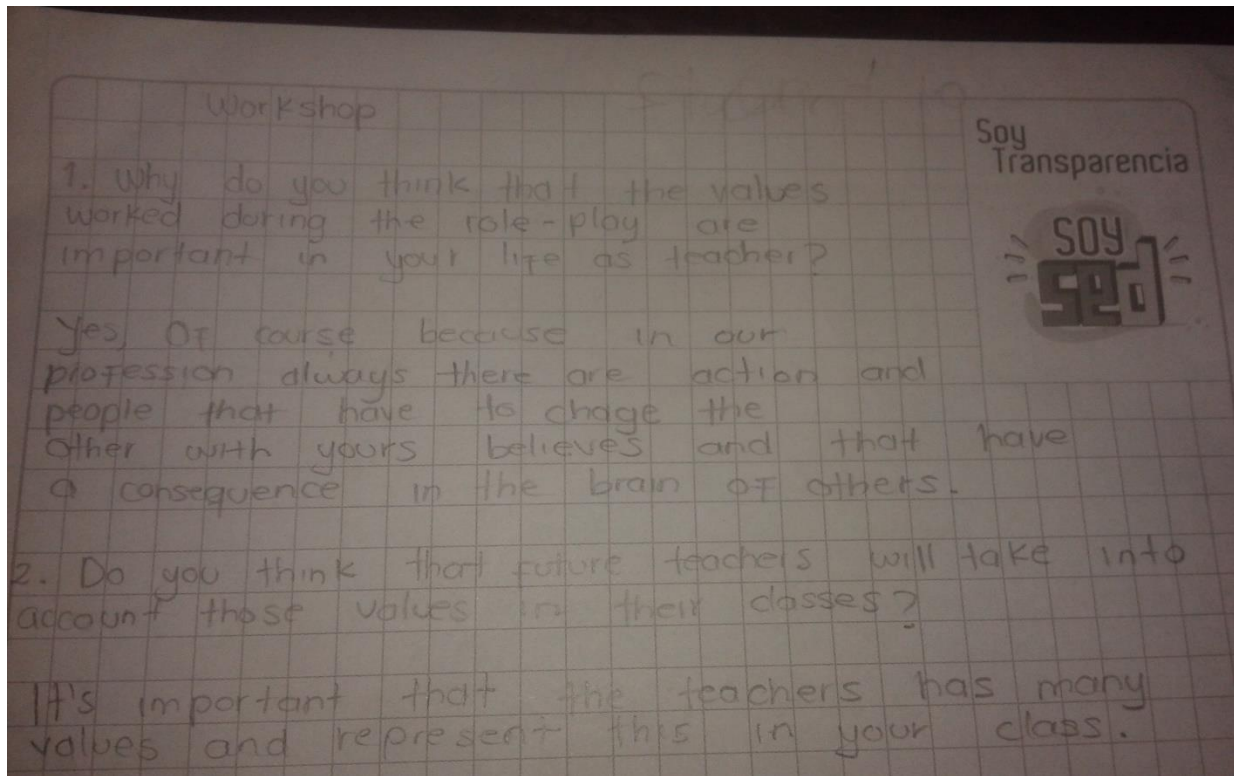 Workshop
Soy
Transparencia
SOY
sed
1. Why do you think that the values
worked during the role-play are
important in your life as teacher?
Yes, Of course because in our
profession always there are action and
people that have to chage the
other with yours believes and that have
a consequence in the brain of others.
2. Do you think that future teachers will take into
account those values in their classes?
It's important that the teachers has many
values and represent this in your class.